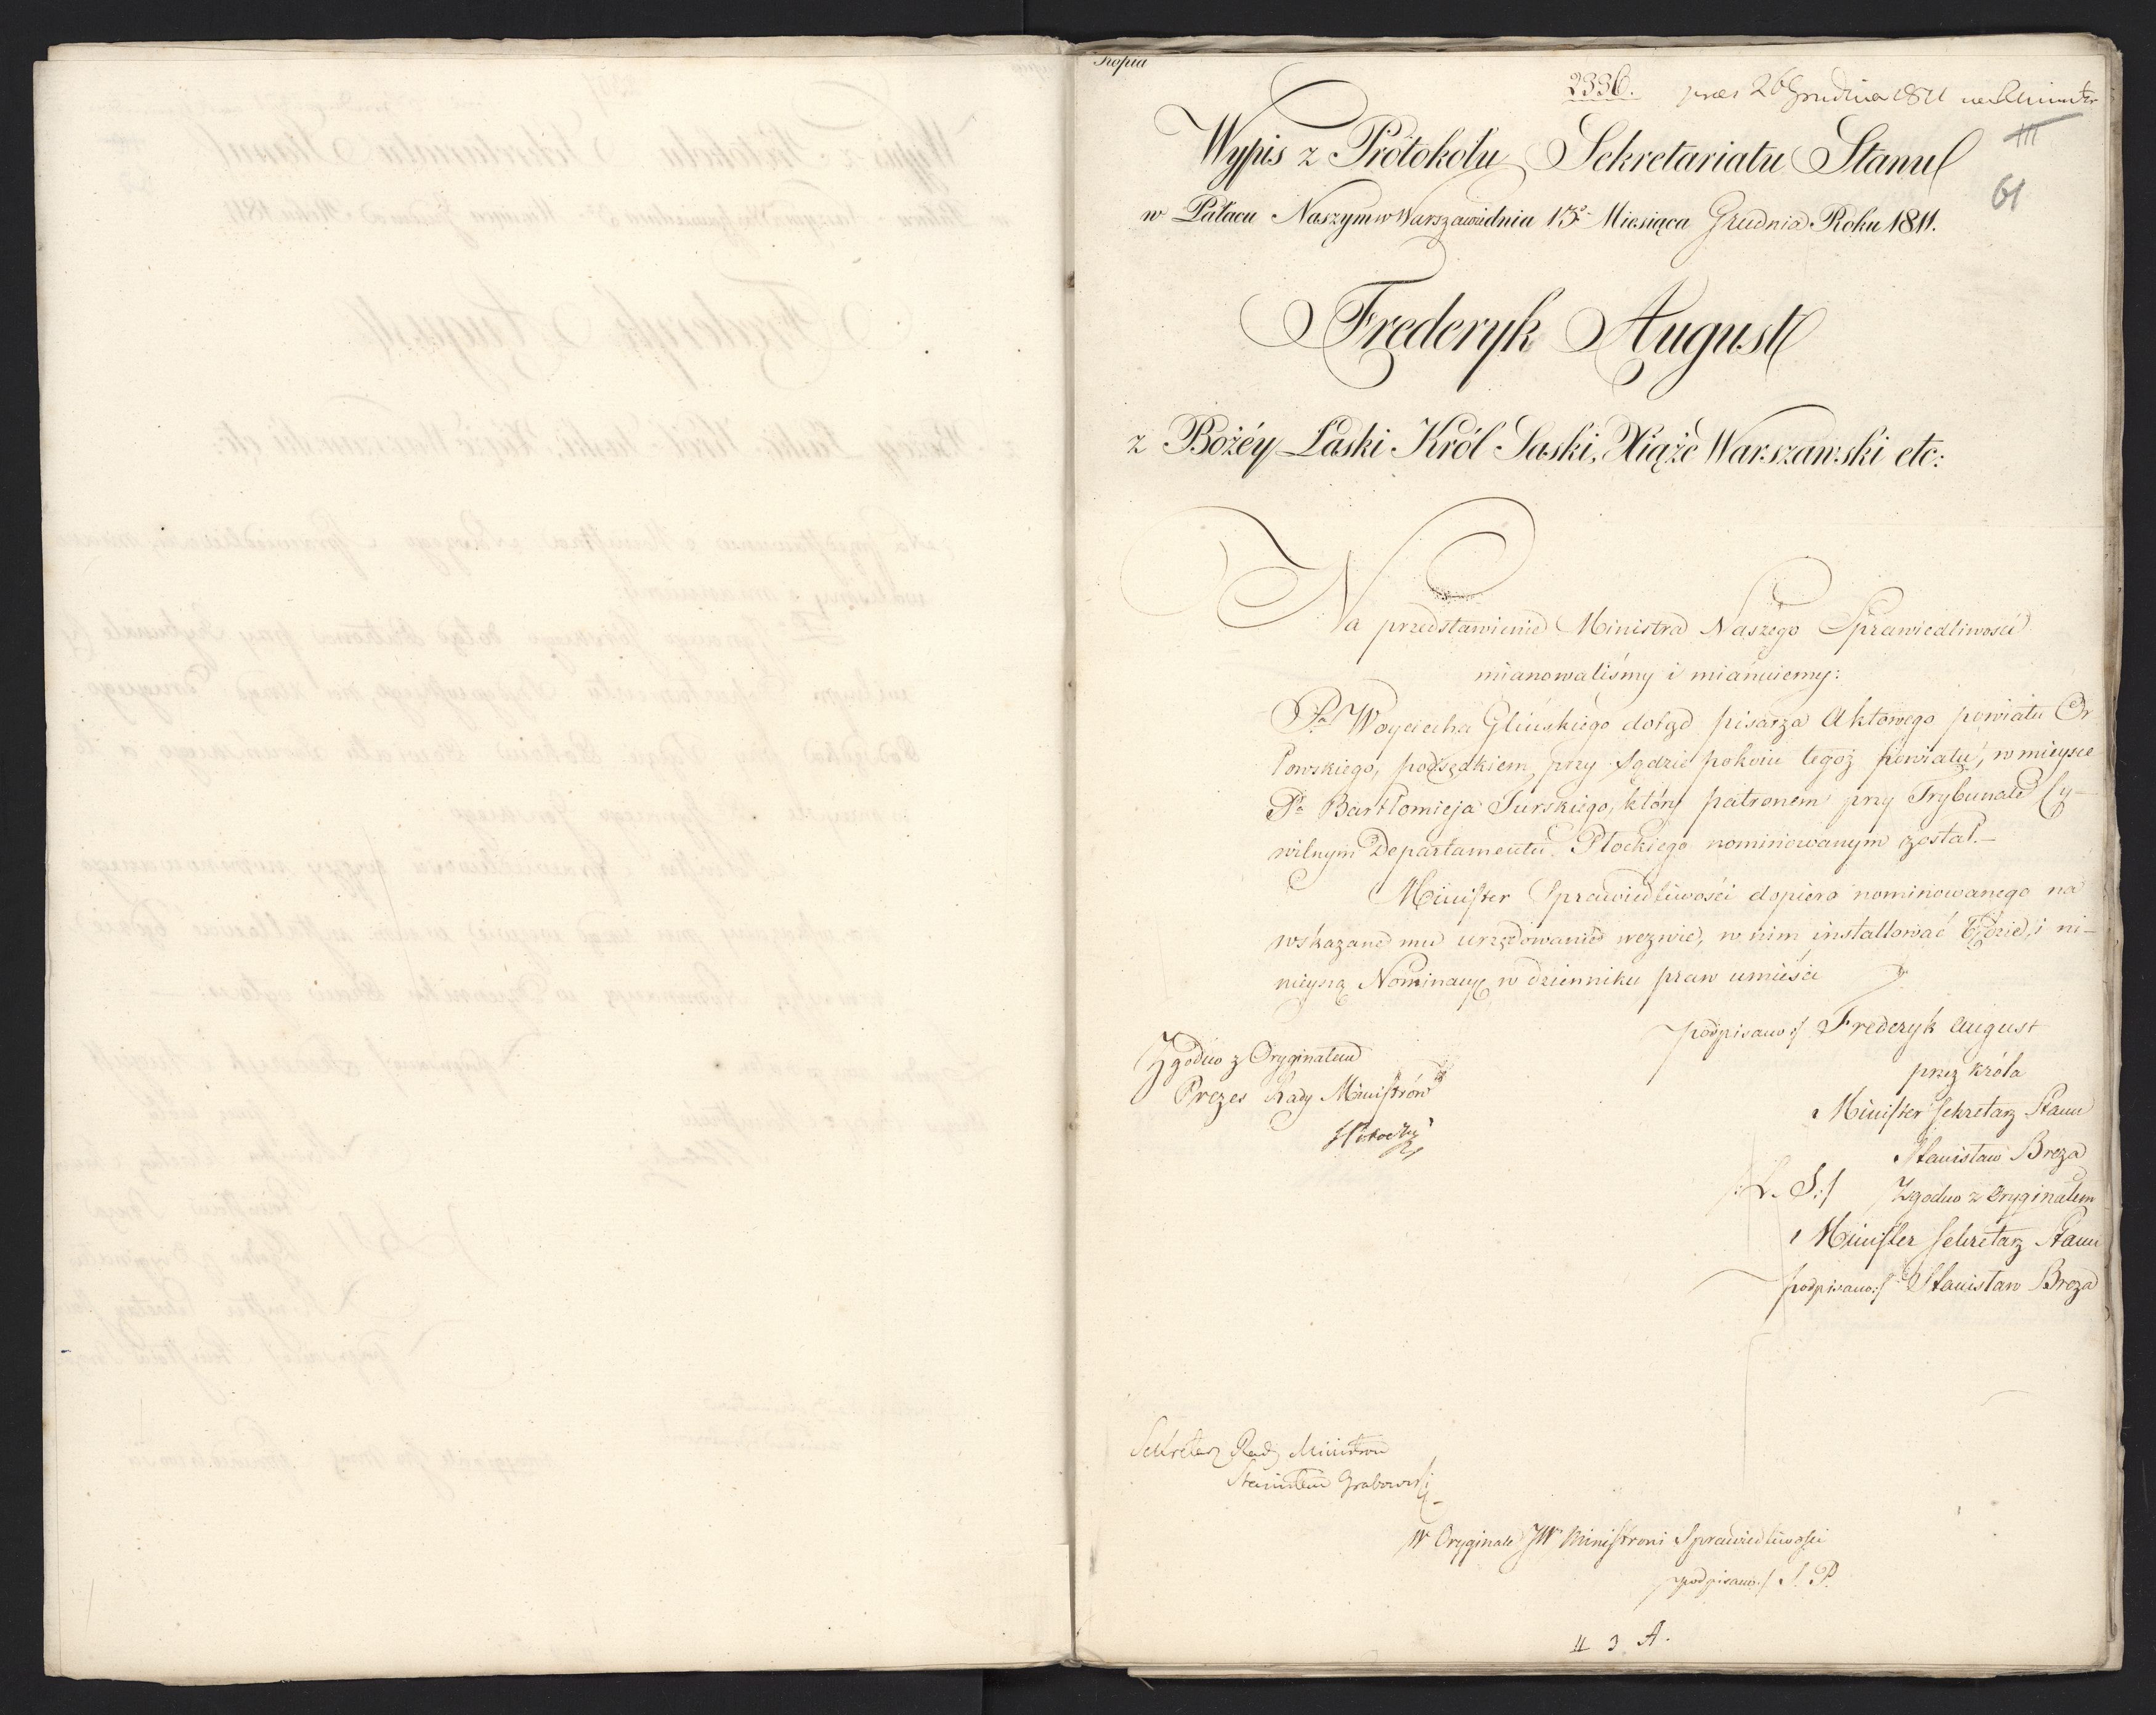 Kopia
2336. prez 26 Grudnia 1811
III
61
Wypis z Protokołu Sekretariatu Stanu
w Pałacu Naszym w Warszawie dnia 13º Miesiąca Grudnia Roku 1811.
Frederyk August
z Bożéy Łaski Król Saski, Xiąże Warszawski etc:
Na przedstawienie Ministra Naszego Sprawiedliwości
mianowaliśmy i mianuiemy:
Pª Woyciecha Glińskiego dotąd pisarza Aktowego powiatu Or
łowskiego, podsędkiem przy Sądzie pokoiu tegoż powiatu, w mieysce
Pª Bartłomieja Turskiego, który patronem przy Trybunale Cy-
wilnym Departamentu Płockiego nominowanym został.-
Minister Sprawiedliwości dopiero nominowanego na
wskazane mu urzędowanie wezwie, w nim installować będzie, i ni-
nieyszą Nominacyę w dzienniku praw umieści
podpisano:/ Frederyk August
przez króla
Minister Sekretarz Stanu
Stanisław Breza
/:L. S:/ Zgodno z Oryginałem
Minister Sekretarz Stanu
podpisano:/ Stanisław Breza
Zgodno z Oryginałem
Prezes Rady Ministrów
Sekretarz Rady Ministrów
Stanisław Grabowski
W Oryginale JW Ministrowi Sprawiedliwości
podpisano:/ S. P.